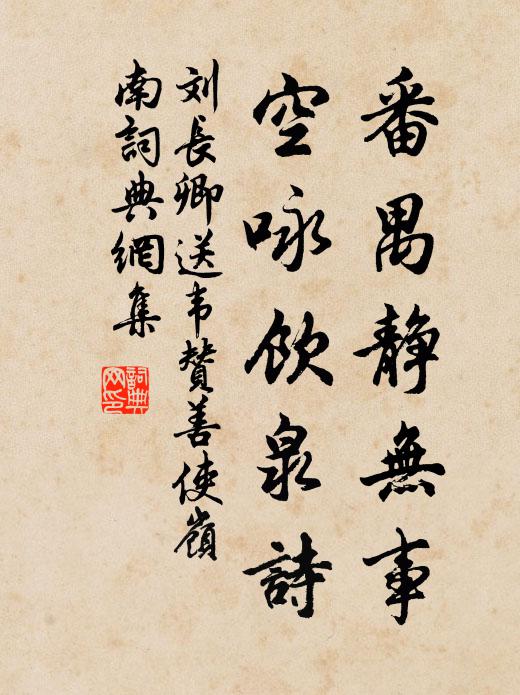 番禺静無事
空咏飲泉詩
刘長卿送韦贊善使嶺
南詞典網集
詞典
网印